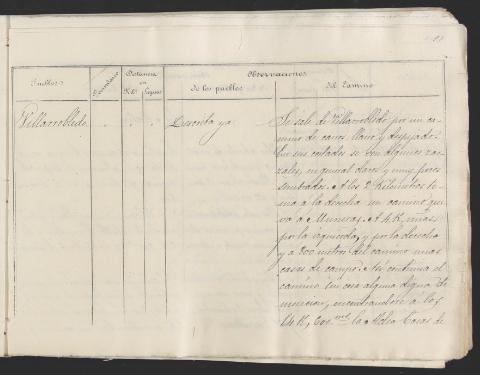 Pueblos
Vecindario
Distancia
en
Kils Leguas
Observaciones
de los pueblos
del Camino
Villarrobledo
Descrito ya
Se sale de Villarrobledo por un ca-
mino de carros, llano y despejado.
En sus costados se ven algunos
en general claros y muy pocos
sembrados. A los 2 Kilometros to-
ma a la derecha un camino que
va a Munera. A 4 K, viñas
por la izquierda, y por la derecha
y a 800 metros del camino unas
casas de campo. Así continua el
camino sin cosa alguna digna de
mencion, encontrandose a los
14 K, 600 ms la Casas de